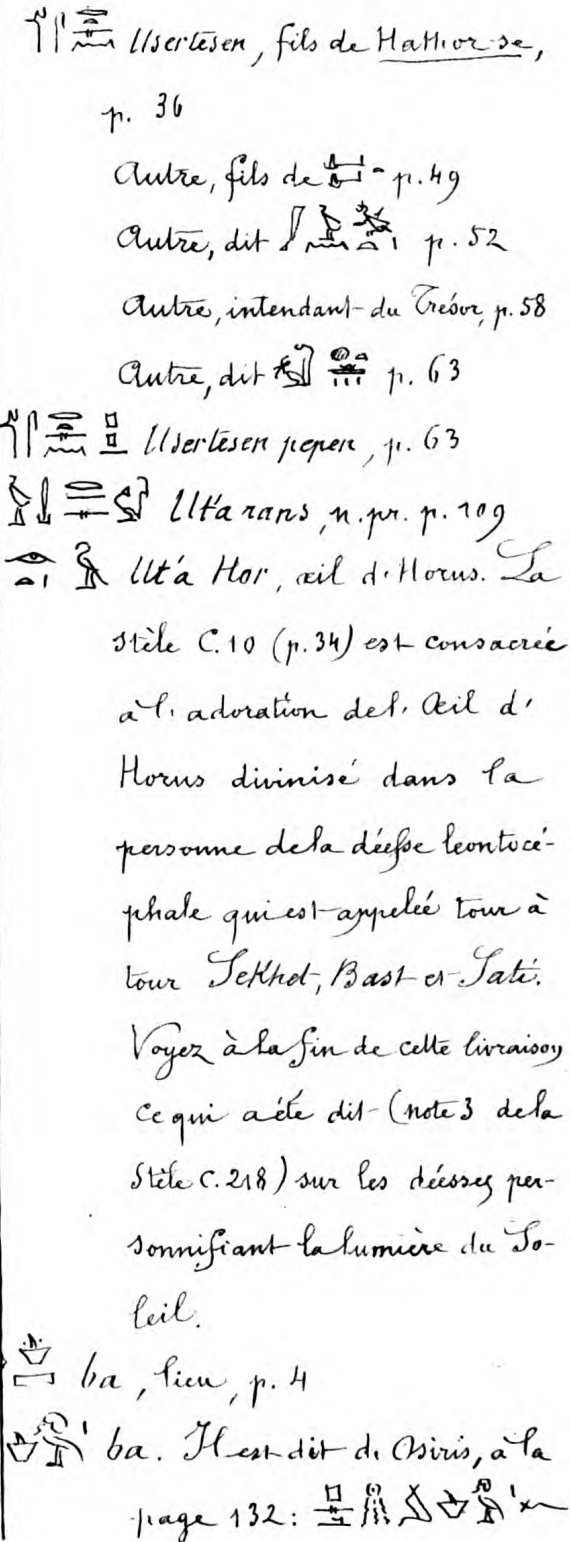 Usertesen, fils de Hathor-se,
p. 36
Autre, fils de p. 49
Autre, dit p. 52
Autre, intendant du Trésor, p. 58
Autre, dit p. 63
Usertesen pepen, p. 63
Ut'a rans, n. pr. p. 109
Ut'a Hor, œil d'Horus. La
Stèle C. 10 (p. 34) est consacrée
à l'adoration de l'Œil d'
Horus divinisé dans la
personne de la déesse leontocé-
phale qui est appelée tour à
tour Sekhet, Bast et Sati.
Voyez à la fin de cette livraison
ce qui a été dit (note 3 de la
Stèle C. 218) sur les déesses per-
sonnifiant la lumière du So-
leil.
ba, lieu, p. 4
ba. Il est dit d'Osiris, à la
page 132: